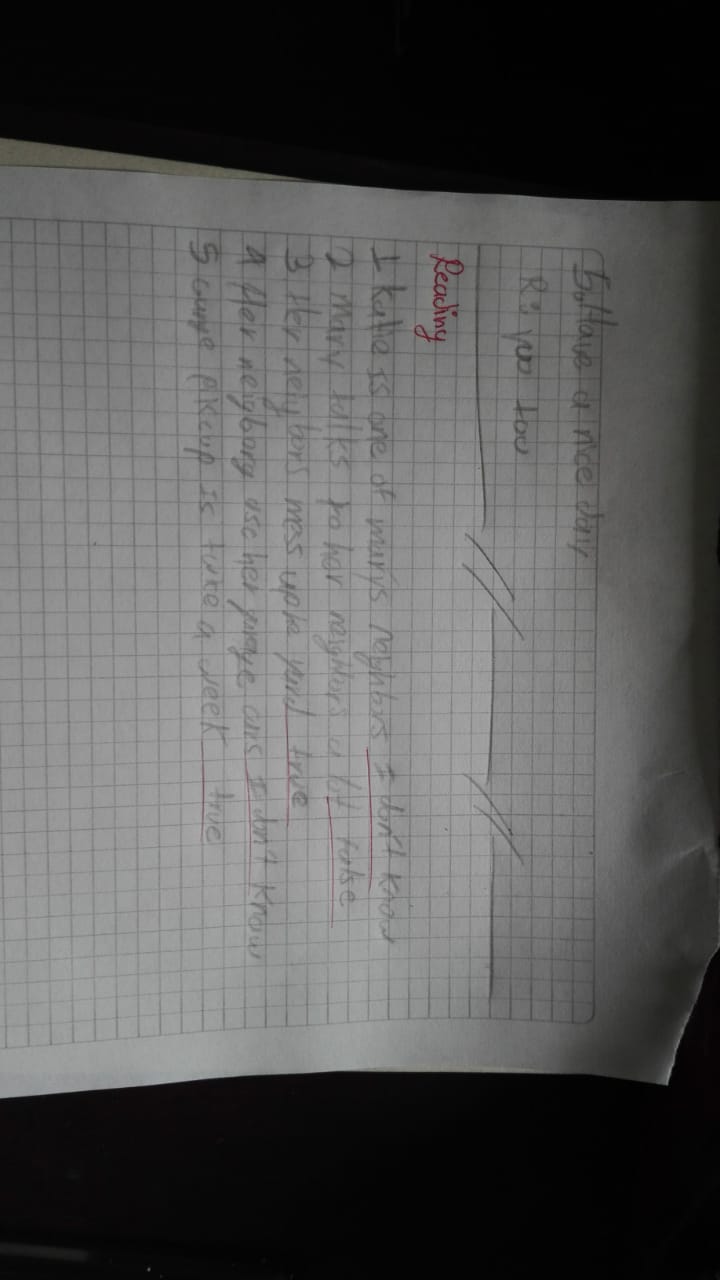 5. Have a nice day
R: you too
Reading
1 Katie is one of mary's neighbors I don't know
2 Mary talks to her neighbors a lot false
3 Her neighbors mess up the yard true
4 Her neigbors use her garage cans I don't know
5 pickup is twice a week true